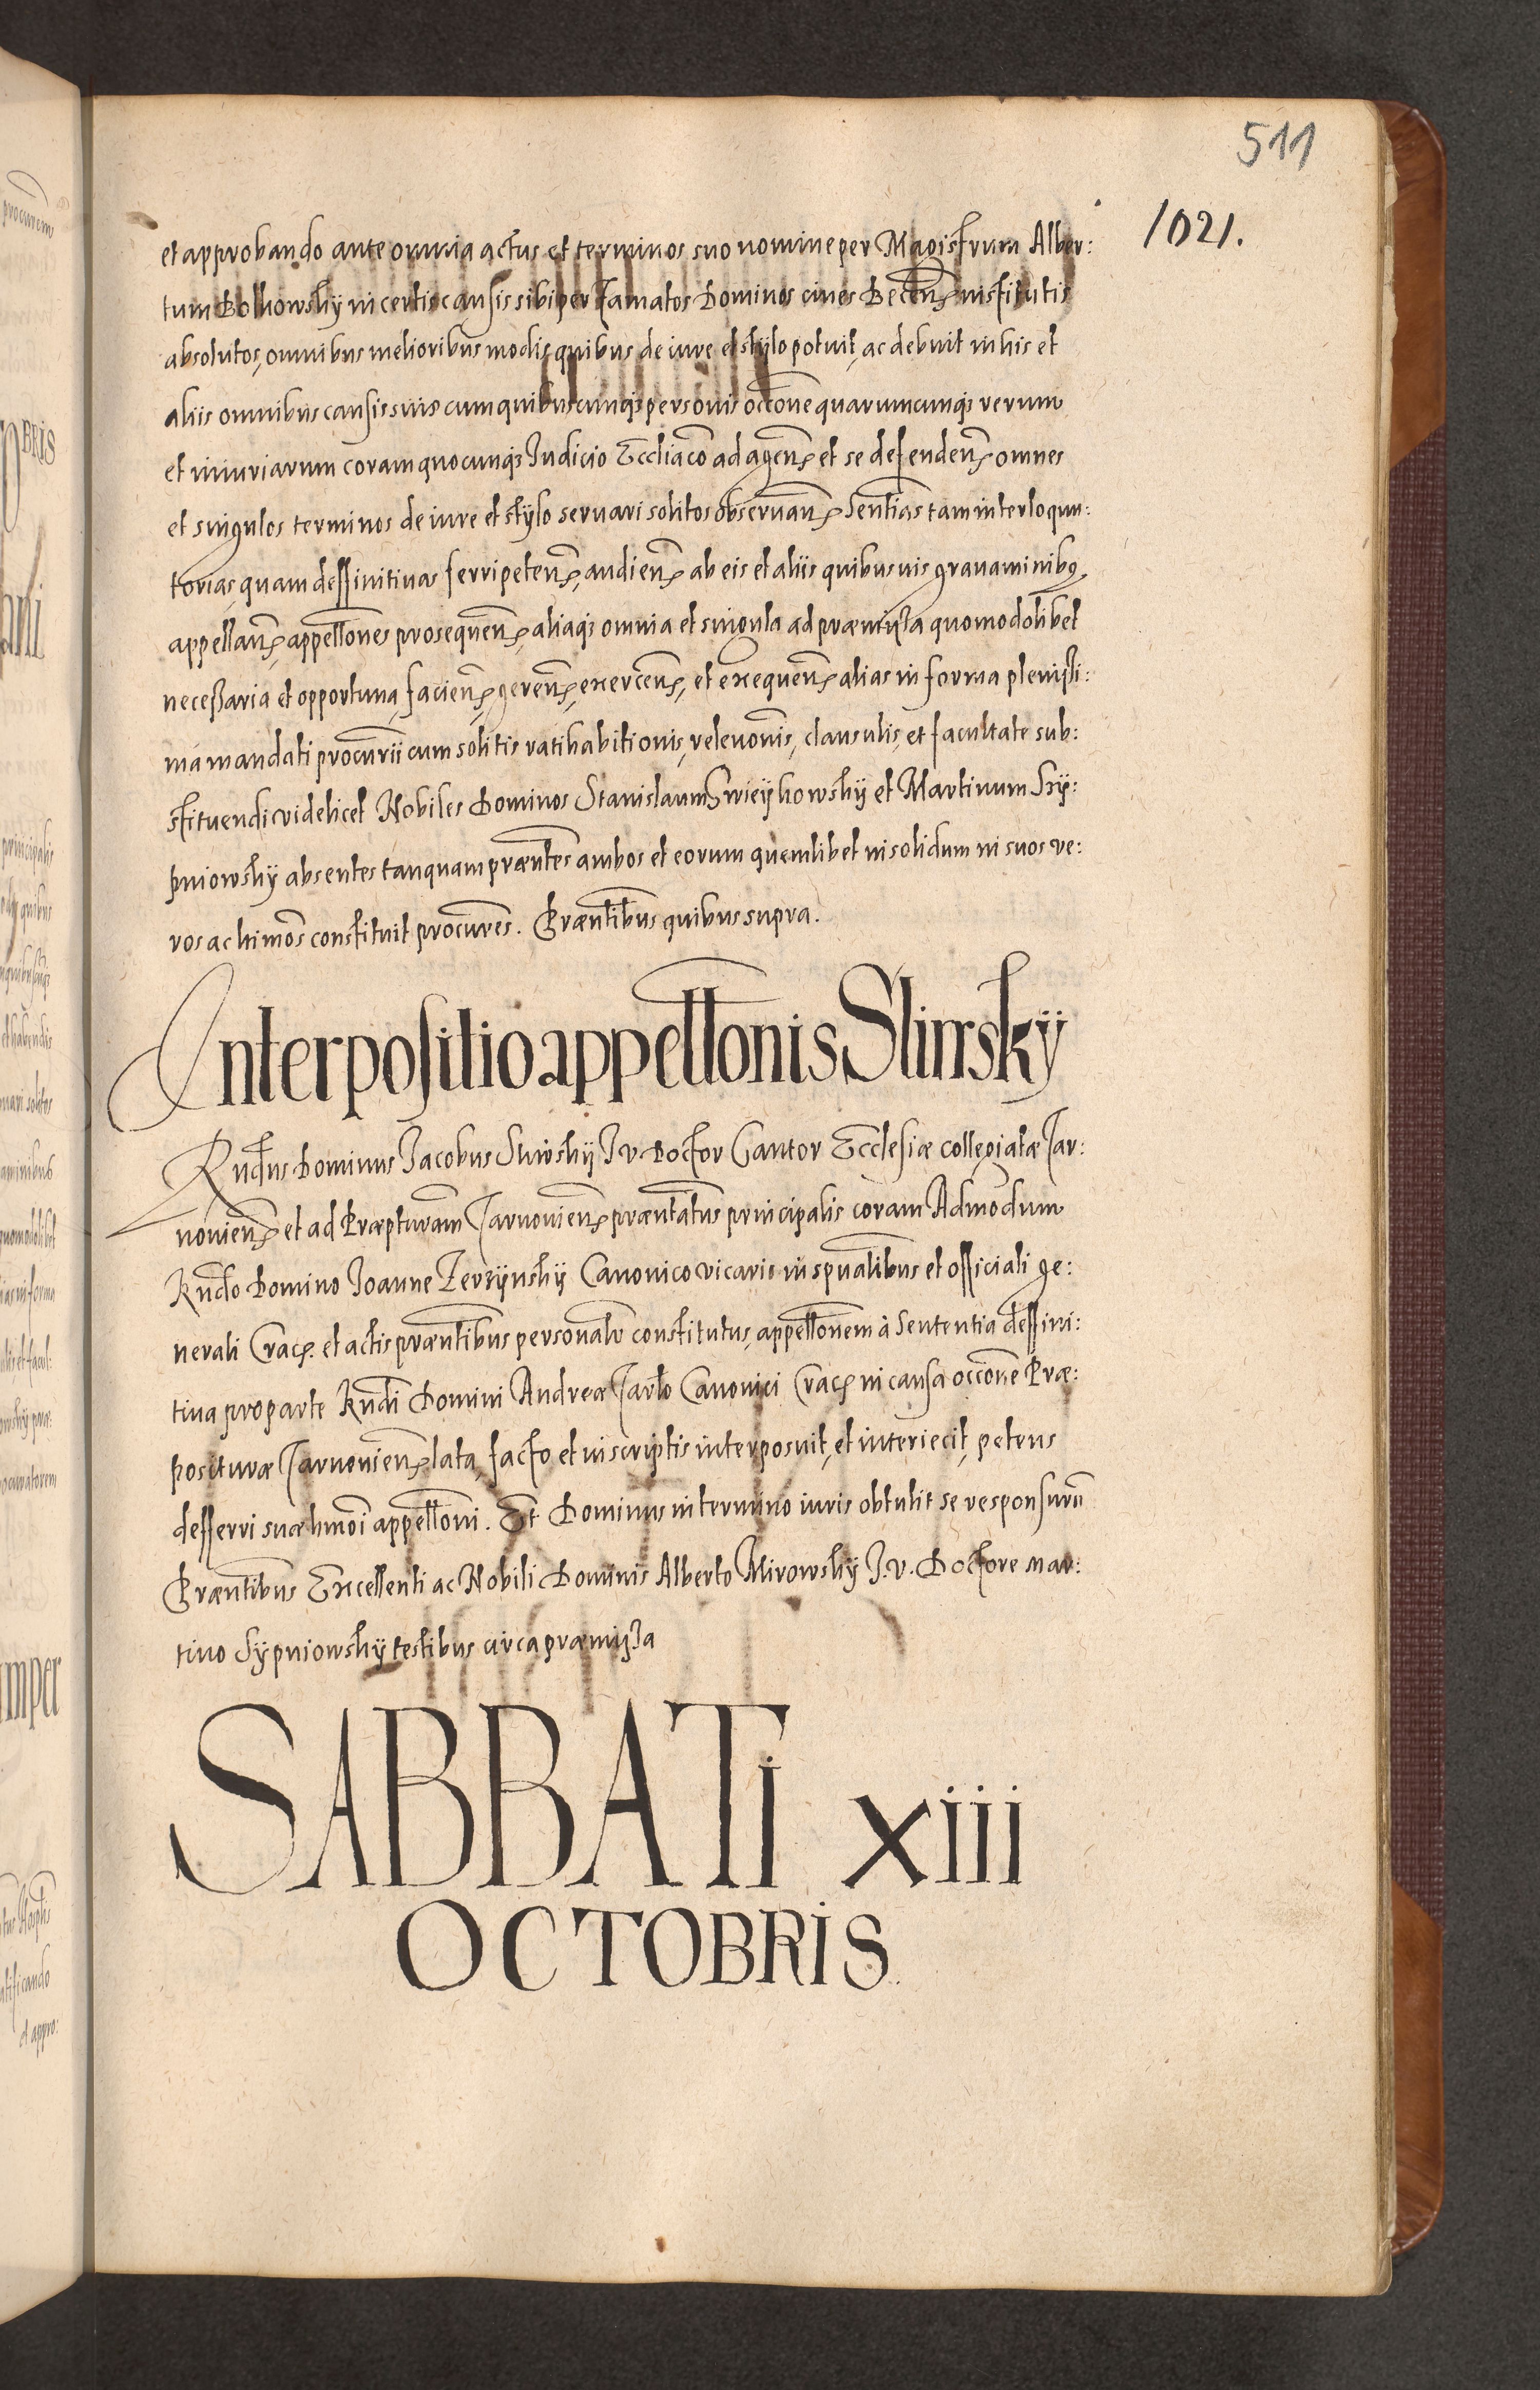 511
1021.
et approbando ante omnia actus et terminos suo nomine per Magistrum Alber:
tum Bolkowsky in certis causis sibi per famatos Dominos cives Becen. institutis
absolutos, omnibus melioribus modis quibus de iure et stÿlo potuit, ac debuit in his et
aliis omnibus causis suis cum quibuscunq; personis occōne quarumcunq; rerum
et iniuriarum coram quocunq; Judicio Eccliaco ad agen. et se defenden. omnes
et singulos terminos de iure et stÿlo servari solitos observan. Sentias tam interloqu:
torias, quam deffinitivas ferri peten. audien. ab eis et aliis quibusvis gravaminibus
appellan. appellones prosequen. aliaq; omnia et singula ad præmissa quomodolibet
necessaria et opportuna, facien. geren. exercen. et exequen. alias in forma plenissi:
ma mandati procurii cum solitis ratihabitionis, relevonis, clausulis, et facultate sub:
stituendi videlicet Nobiles Dominos Stanislaum Swieÿkowskÿ et Martinum Sÿ:
pniowskÿ absentes tanquam præntes ambos et eorum quemlibet in solidum in suos ve:
ros ac himos constituit procures. Præntibus quibus supra.
Interpositio appellonis Slinskÿ
Rndus Dominus Jacobus Slinskÿ J. V. Doctor Cantor Ecclesiæ collegiatæ Tar:
novien. et ad Præpturam Tarnovien. præntatus principalis coram Admodum
Rndo Domino Joanne Zerzÿnskÿ Canonico vicario in spualibus et officiali ge:
nerali Crac. et actis præntibus personalr constitutus, appellonem à Sententia deffini:
tiva pro parte Rndi Domini Andreæ Tarlo Canonici Crac. in causa occōne Præ:
posituræ Tarnovien. lata, facto et in scriptis interposuit, et interiecit, petens
defferri suæ hmōi appelloni. Et Dominus in termino iuris obtulit se responsurū
Præntibus Excellenti ac Nobili Dominis Alberto Mirowskÿ J. V. Doctore Mar:
tino Sÿpniowskÿ testibus circa præmissa
SABBATI xiii
OCTOBRIS